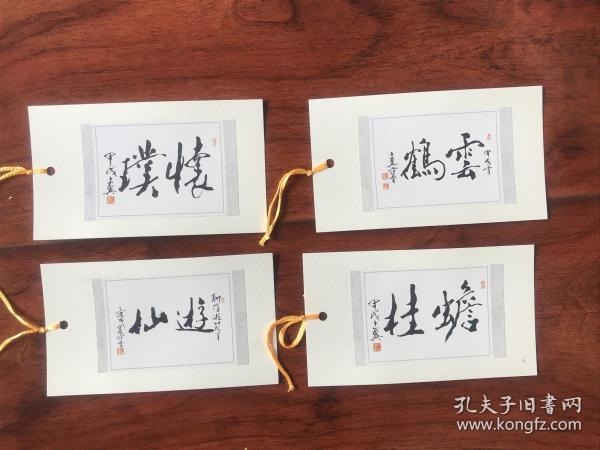 懷璞
甲戌
雲鶴
甲戌年
遊仙
蟾桂
甲戌
孔夫子旧书网
www.kongfz.com